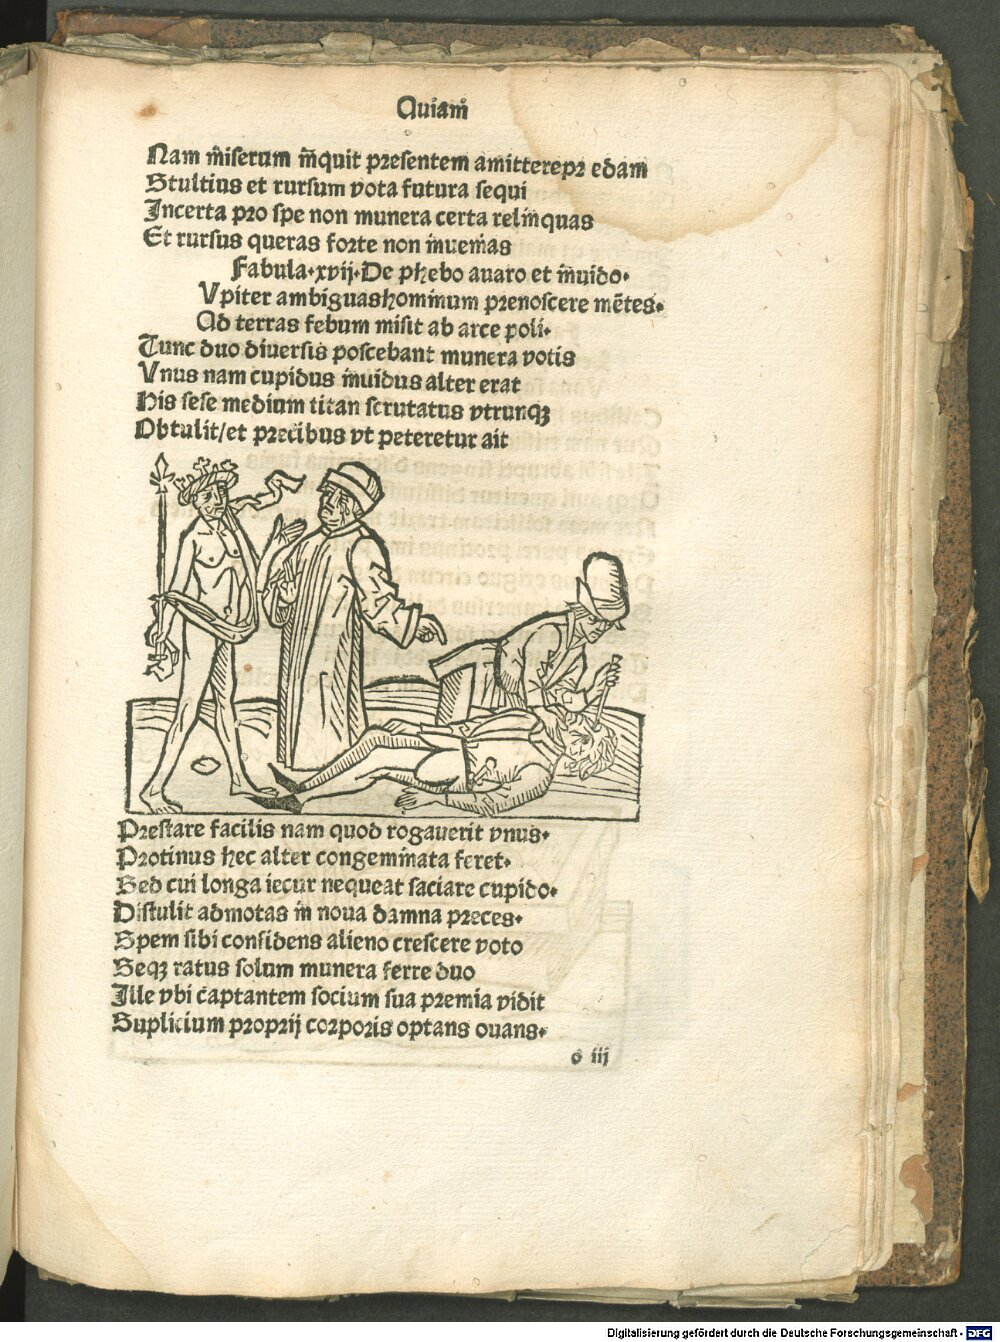 Quiam̃
Nam m̃iserum m̃quit presentem amitterepr edam
Stultius et rursum vota futura sequi
Incerta pro spe non munera certa relim̃quas
Et rursus queras forte non m̃uem̃as
Fabula.xvij.De phebo auaro et m̃uido.
Vpiter ambiguashominum prenoscere mẽtes.
Ad terras febum misit ab arce poli.
Tunc duo diuersis poscebant munera votis
Vnus nam cupidus m̃uidus alter erat
His sese medium titan scrutatus vtrunqꝫ
Obtulit/et precibus vt peteretur ait
Prestare facilis nam quod rogauerit vnus.
Protinus hec alter congeminata feret.
Sed cui longa iecur nequeat saciare cupido.
Distulit admotas m̃ noua damna preces.
Spem sibi confidens alieno crescere voto
Seqꝫ ratus solum munera ferre duo
Ille vbi captantem socium sua premia vidit
Suplicium proprij corporis optans ouans.
o iij
Digitalisierung gefördert durch die Deutsche Forschungsgemeinschaft - DFG